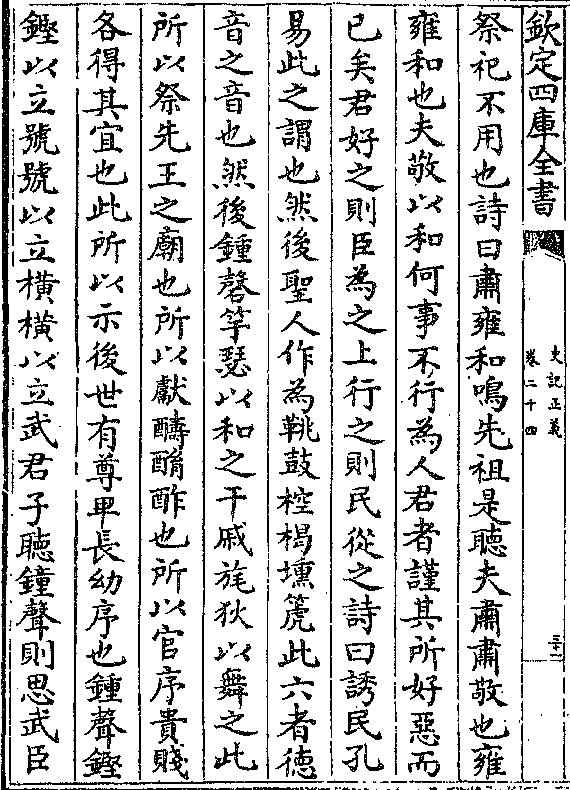 欽定四庫全書
史記正義
卷二十四
三十一
祭祀不用也詩曰肅雍和鳴先祖是聽夫肅肅敬也雍
雍和也夫敬以和何事不行為人君者謹其所好惡而
已矣君好之則臣為之上行之則民從之詩曰誘民孔
易此之謂也然後聖人作為鞉鼓椌楬壎箎此六者德
音之音也然後鍾磬竽瑟以和之干戚旄狄以舞之此
所以祭先王之廟也所以獻醻酳酢也所以官序貴賤
各得其宜也此所以示後世有尊卑長幼序也鍾聲鏗
鏗以立號號以立橫橫以立武君子聽鐘聲則思武臣